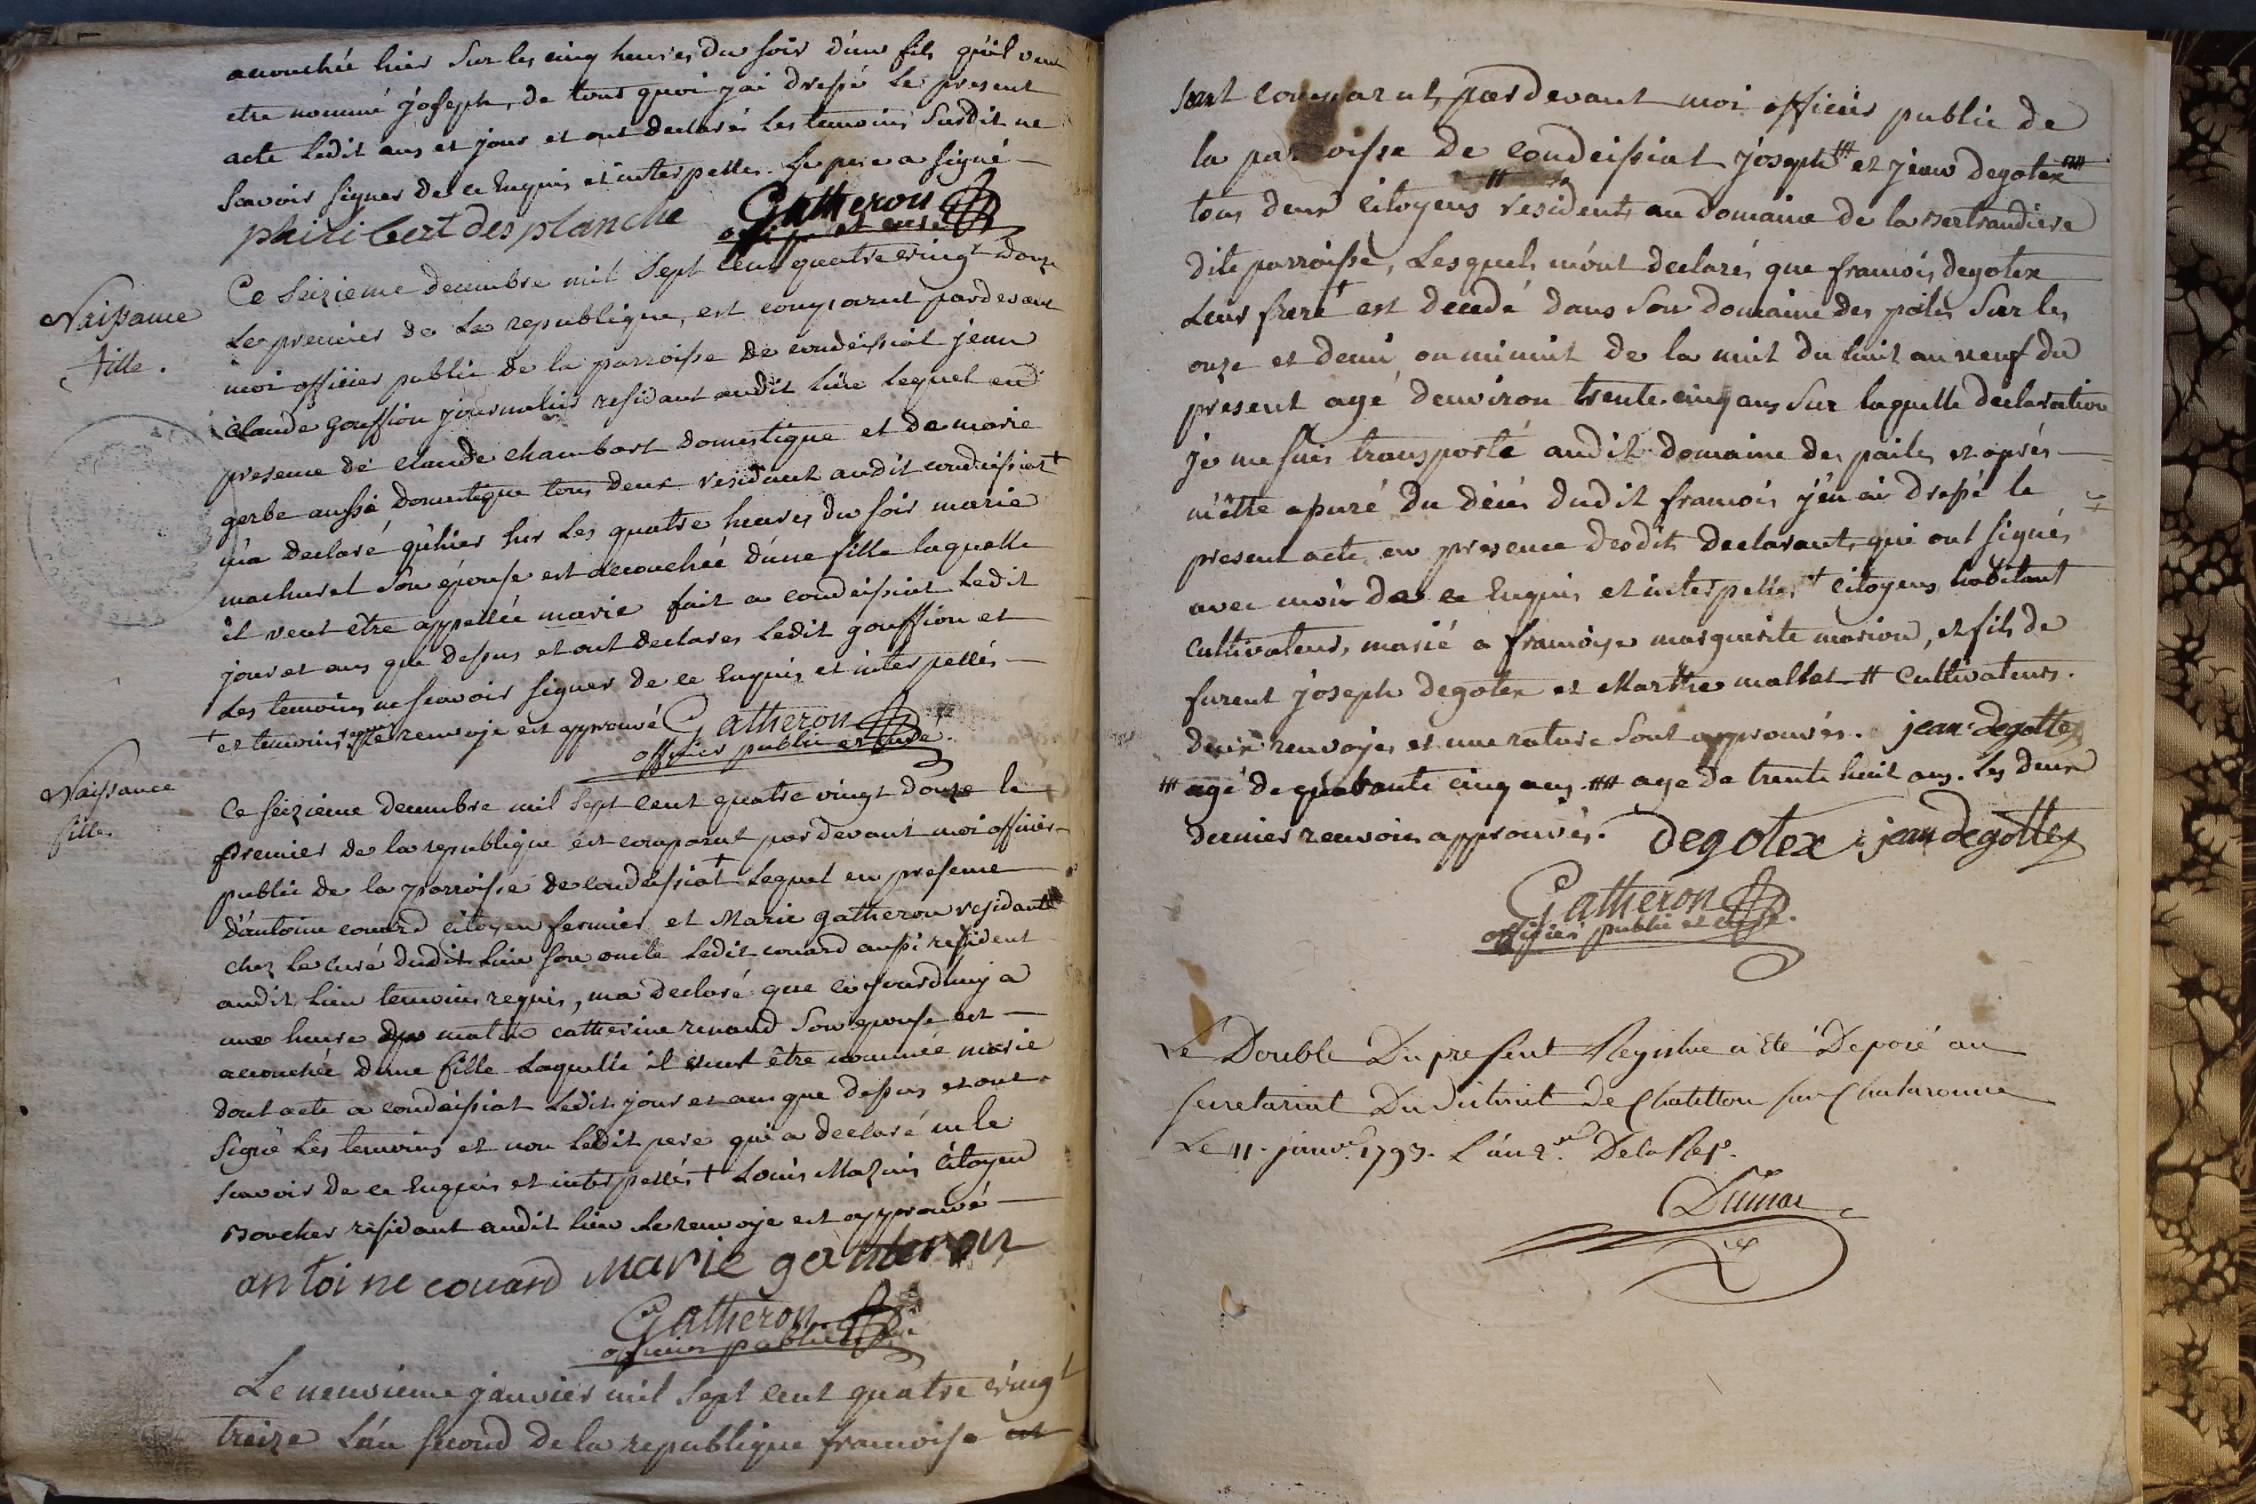 accouchée hier Sur les cinq heures du soir d'un fils qu'il veut
etre nommé joseph, de tout quoi j'ai dressé Le present
acte Ledit ans et jour et ont declarés Les temoins Susdit ne
Scavoir signer de ce Enquis et interpellés. Le pere a signé
philibert desplanche Gatheron
Naissance
fille.
Ce Seizieme decembre mil Sept cent quatre vingt douze
Le premier de La republique, est comparut pardevant
moi officier public de la parroisse de condeissiat jean
claude gouffion journalier residant audit lieu Lequel en
presence de claude chambart domestique et de marie
gerbe aussi domestique tous deux residant audit condeissiat +
m'a declaré qu'hier sur Les quatre heures du soir marie
machuret Son épouse est accouchée d'une fille laquelle
il veut être appellée marie fait a condeissiat Ledit
jour et ans que dessus et ont declares Ledit gouffion et
Les temoins ne scavoir signer de ce Enquis et interpellés
+ et temoins requis Le renvoje est approuvé Gatheron
officier public et curé.
Naissance
fille.
Ce seizieme decembre mil Sept cent quatre vingt douze le
premier de la republique est comparut pardevant moi officier
public de la parroisse de condeissiat + Lequel en presence
d'antoine couard citoyen fermier et Marie gatheron residante
chez Le curé dudit Lieu son oncle Ledit couard aussi resident
audit Lieu temoins requis, m'a declaré que ce jourdhuy a
une heure du matin catherine renaud Son epouse est
accouchée d'une fille Laquelle il veut être nommée marie
dont acte a condeissiat Ledit jour et ans que dessus et ont
signé Les temoins et non Ledit pere qui a declaré ne le
scavoir de ce Enquis et interpellés + Louis Mazuis Citoyen
Boucher residant audit lieu Le renvoje est approuvé
antoine couard Marie gatheron
Gatheron
officier public
Le neuvieme janvier mil Sept cent quatre vingt
treize L'an second de la republique francoise
Sont comparut pardevant moi officier public de
la parroisse de condeissiat joseph et jean degotex
tous deux citoyens residents au domaine de la Bertrandiere
dite parroisse, Lesquels m'ont declarés que francois degotex
Leur frere + est decedé dans Son domaine des pailes Sur les
onze et demi ou minuit de la nuit du huit au neuf du
present agé d'environ trente cinq ans Sur laquelle declaration
je me suis transporté audit domaine des pailes et aprés
m'être assuré du décés dudit francois j'en ai dressé le
present acte en presence desdits declarants qui ont signés
avec moi de ce Enquis et interpellés + citoyens habitant
cultivateur, marié a francoise marguerite marion, et fils de
furent joseph degotex et Marthe mallet # cultivateurs.
deux renvojes et une rature Sont approuvés. jean degottex
agé de quarante cinq ans. agé de trente huit ans. Les deux
dernier renvois approuvés. Degotex jean degottex
Gatheron
officier public et curé.
Le Double Du present Registre a été Deposé au
secretariat Du district De Chatillon sur Chalaronne
Le 11. janv. 1793. L'an 2. De la Rep.
Dumas